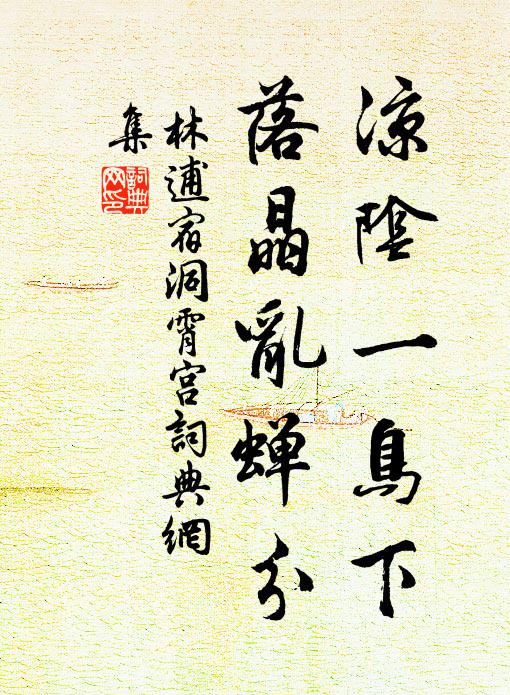 涼陰一鳥下
落晶亂蝉分
林逋宿洞霄宮詞典網
集
詞典
网印